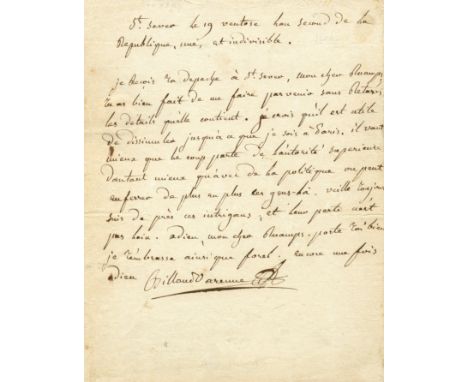 St. sever le 19 ventose lan second de la
Republique, une, et indivisible.
je Reçois ta depeche à St. sever, mon cher Duchamps,
tu as bien fait de me faire parvenir sans Retard
les détails quelle contient. je crois qu'il est utile
de dissimuler jusqu'à ce que je sois à Paris. il vaut
mieux que le coup parte de l'autorité supérieure
dautant mieux qu'avec de la politique on peut
enferrer de plus en plus ces gens-là. veille toujours
suis de près ces intrigans, et leur perte n'est
pas loin. adieu, mon cher Duchamps. porte toi bien
je t'embrasse ainsi que forel. encore une fois
adieu Billaud Varenne